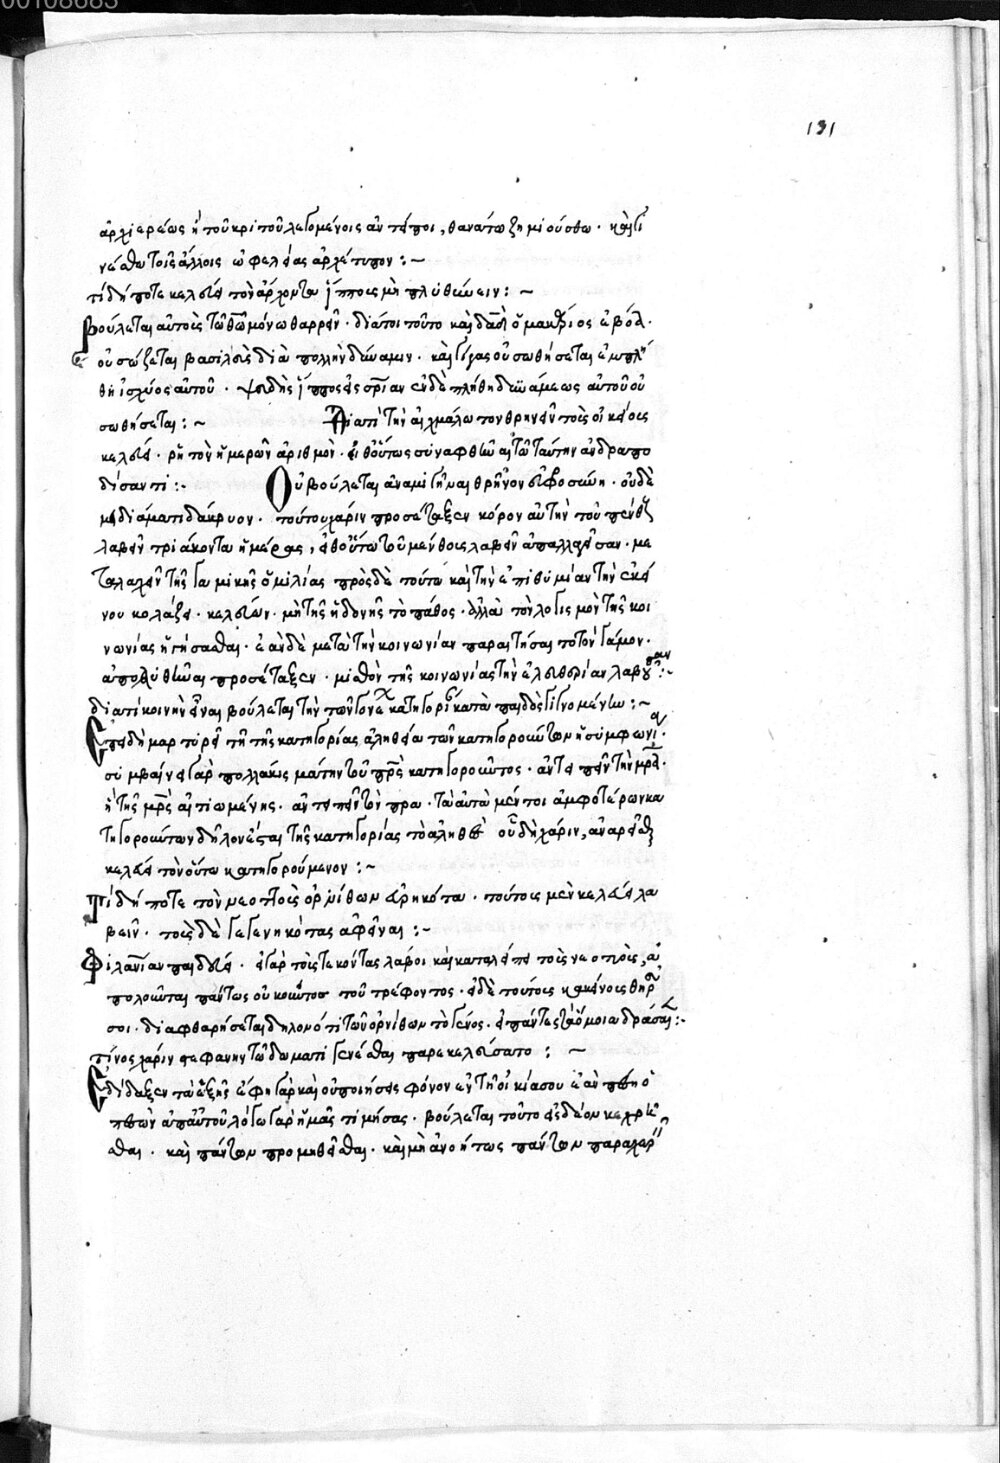 00108683
131
ἀρχιερέως ἢ τοῦ κριτοῦ λεγομένοις ἀντείποι, θανάτω ζημιούσθω · καὶ γι
νέσθω τοῖς ἄλλοις ὠφελείας ἀρχέτυπον :~
τί δήποτε κελεύει τὸν ἄρχοντα ἵπποις μὴ πληθύνειν : ~
Βούλεται αὐτοὺς τῶ θεῶ μόνω θαρρεῖν · διάτοι τοῦτο καὶ δαδ ὁ μακάριος ἐβόα ·
οὐ σώζεται βασιλεὺς διὰ πολλὴν δύναμιν · καὶ γίγας οὐ σωθήσεται ἐν πλή
θει ἰσχύος αὐτοῦ · ψευδὴς ἵππος εἰς σρίαν ἐν δὲ πλήθει δυνάμεως αὐτοῦ οὐ
σωθήσεται : ~ Διατί τὴν αἰχμάλωτον θρηνεῖν τοὺς οἰκείους
κελεύει · ῥητὸν ἡμερῶν ἀριθμὸν · εἶθ οὕτως συναφθῆναι τῶ ταύτην ἀνδραπο
δίσαντι :- Οὐ βούλεται ἀναμιγῆναι θρῆνον εὐφροσύνη · οὐδὲ
μειδιάματι δάκρυον · τούτου χάριν προσέταξεν κόρον αὐτὴν τοῦ πένθους
λαβεῖν τριάκοντα ἡμέρας, εἶθ οὕτω τοῦ πένθους λαβεῖν ἀπαλλαγεῖσαν · με
ταλαχεῖν τῆς γαμικῆς ὁμιλίας πρὸς δὲ τούτω καὶ τὴν ἐπιθυμίαν τὴν ἐκεί
νου κολάζει · κελεύων · μὴ τῆς ἡδονῆς τὸ πάθος · ἀλλὰ τὸν λογισμὸν τῆς κοι
νωνίας ἡγήσασθαι · ἐὰν δὲ μετὰ τὴν κοινωνίαν παραιτήσαιτο τὸν γάμον ·
ἀπολυθῆναι προσέταξεν · μισθὸν τῆς κοινωνίας τὴν ἐλευθερίαν λαβοῦσαν :-
διατί κοινὴν εἶναι βούλεται τὴν τῶν γονέων κατηγορίαν κατὰ παιδὸς γιγνομένην :~
Ἐπειδὴ μαρτυρεῖ τῆ τῆς κατηγορίας ἀληθεία τῶν κατηγορούντων ἡ συμφωνία ·
συμβαίνει γὰρ πολλάκις μάτην τοῦ πρς κατηγοροῦντος · ἀντειπεῖν τὴν μρα ·
ἢ τῆς μρς αἰτιωμένης · ἀντειπεῖν τὸν πρα · ταὐτὰ μέντοι ἀμφοτέρων κα
τηγορούντων δῆλον ἔσται τῆς κατηγορίας τὸ ἀληθὲς οὗ δὴ χάριν, ἀναιρεῖσθαι
κελεύει τὸν οὕτω κατηγορούμενον :~
Τί δήποτε τὸν νεοττοῖς ὀρνίθων εὑρηκότα · τούτους μὲν κελεύει λα
βεῖν · τοὺς δὲ γεγεννηκότας ἀφεῖναι :~
Φιλανίαν παιδεύει · εἰ γὰρ τοὺς τεκόντας λάβοι καὶ καταλείπει τοὺς νεοττοὺς, ἀ
πολοῦνται πάντως οὐκ ὄντος τοῦ τρέφοντος · εἰ δὲ τούτους κἀκείνους θηρεύ
σοι · διαφθαρήσεται δηλονότι τῶν ὀρνίθων τὸ γένος · εἰ πάντες τὰ ὅμοια δράσαιεν :-
τίνος χάριν στεφάνην τῶ δώματι γενέσθαι παρεκελεύσατο : ~
Ἐδίδαξεν τὰ ἑξῆς ἔφη γὰρ καὶ οὐ ποιήσεις φόνον ἐν τῆ οἰκία σου ἐὰν πέση ὁ
πεσὼν ἀπ αὐτοῦ λόγω γὰρ ἡμᾶς τιμήσας · βούλεται τοῦτο εἰς δέον κεχρῆ
σθαι · καὶ πάντων προμηθεῖσθαι · καὶ μὴ ἀνοήτως πάντων παραχωρεῖν